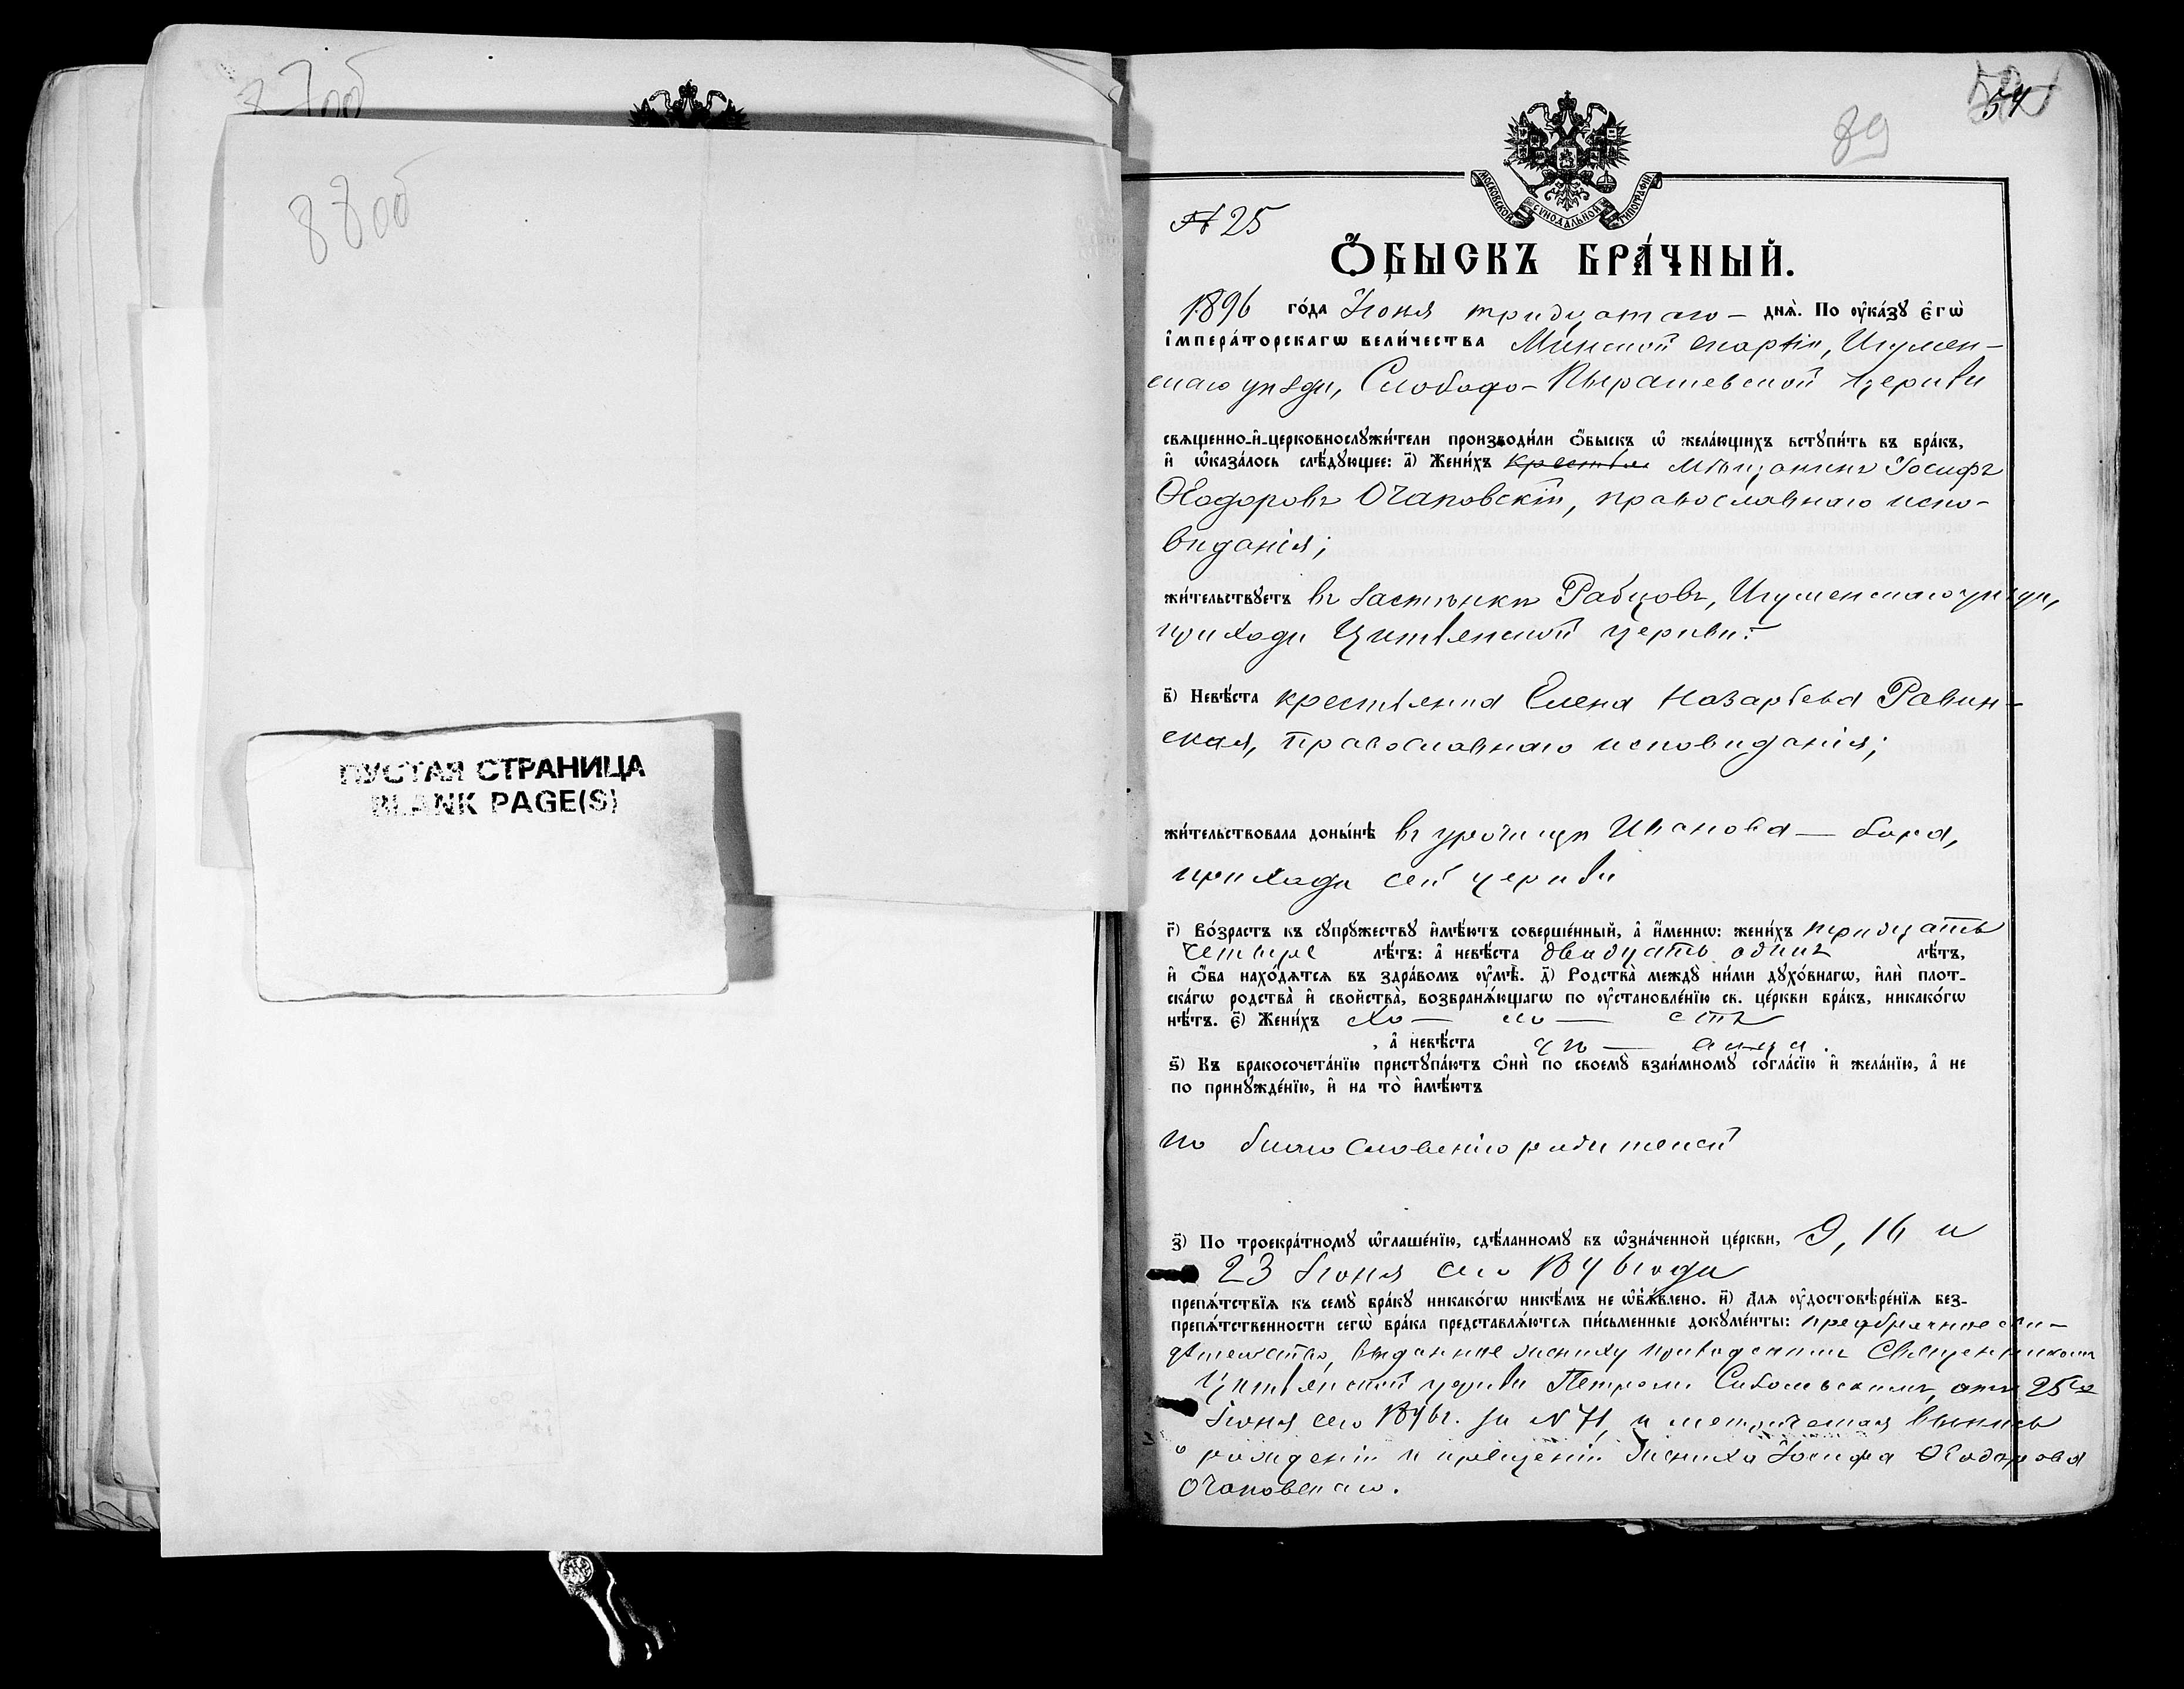 88об
ПУСТАЯ СТРАНИЦА
BLANK PAGE(S)
89
54
МОСКОВСКОЙ СѴНОДАЛЬНОЙ ТИПОГРАФІИ
№ 25
Ѻ҆БЫСКЪ БРА́ЧНЫЙ.
1896 го́да Іюня тридцатаго — днѧ̀. По ᲂу҆ка́зꙋ є҆гѡ̀
і҆мпера́торскагѡ вели́чества Минской епархіи, Игумен-
скаго уѣзда, Слободо-Пырашевской церкви
свѧщенно-и҆-церковнослꙋжи́тели производи́ли ѻ҆́быскъ ѡ҆ жела́ющихъ встꙋпи́ть въ бра́къ,
и҆ ѡ҆каза́лось слѣ́дꙋющее: а҃) Жени́хъ мѣщанинъ Іосифъ
Ѳеодоровъ Очаповскій, православнаго испо-
вѣданія;
жи́тельствꙋетъ въ застѣнкѣ Рабцовъ, Игуменскаго уѣзда,
прихода Цитвянской церкви.
в҃) Невѣ́ста крестьянка Елена Назарьева Равин-
ская, православнаго исповѣданія;
жи́тельствовала доны́нѣ въ урочищѣ Иванова — бора,
прихода сей церкви
г҃) Во́зрастъ къ сꙋпрꙋ́жествꙋ и҆мѣ́ютъ соверше́нный, а҆ и҆́меннѡ: жени́хъ тридцать
четыре лѣ́тъ: а҆ невѣ́ста двадцать одинъ лѣ́тъ,
и҆ ѻ҆́ба нахо́дѧтсѧ въ здра́вомъ ᲂу҆мѣ̀. д҃) Родства̀ междꙋ̀ ни́ми дꙋхо́внагѡ, и҆лѝ плот-
ска́гѡ родства̀ и҆ сво́йства̀, возбранѧ́ющагѡ по ᲂу҆становле́нїю св. це́ркви бра́къ, никако́гѡ
нѣ́тъ. є҃) Жени́хъ хо — ло — стъ
, а҆ невѣ́ста дѣ — вица.
ѕ҃) Къ бракосочета́нїю пристꙋпа́ютъ ѻ҆нѝ по своемꙋ̀ взаи́мномꙋ согла́сїю и҆ жела́нїю, а҆ не
по принꙋжде́нїю, и҆ на то̀ и҆мѣ́ютъ
по благословенію родителей
з҃) По троекра́тномꙋ ѡ҆глаше́нїю, сдѣ́ланномꙋ въ ѡ҆зна́ченной це́ркви, 9, 16 и
23 Іюня сего 1896 года
препѧ́тствїѧ къ семꙋ̀ бра́кꙋ никако́гѡ никѣ́мъ не ѡ҆б̾ѧ́влено. и҃) Длѧ ᲂу҆достовѣре́нїѧ без-
препѧ́тственности сегѡ̀ бра́ка представлѧ́ютсѧ пи́сьменные докꙋме́нты: предбрачное сви-
дѣтельство, выданное жениху приходскимъ Священникомъ
Цитвянской церкви Петромъ отъ 25го
Іюня сего 1896г. за № 71, и метрическая выпись
о рожденіи и крещеніи жениха Іосифа Ѳеодорова
Очаповскаго.